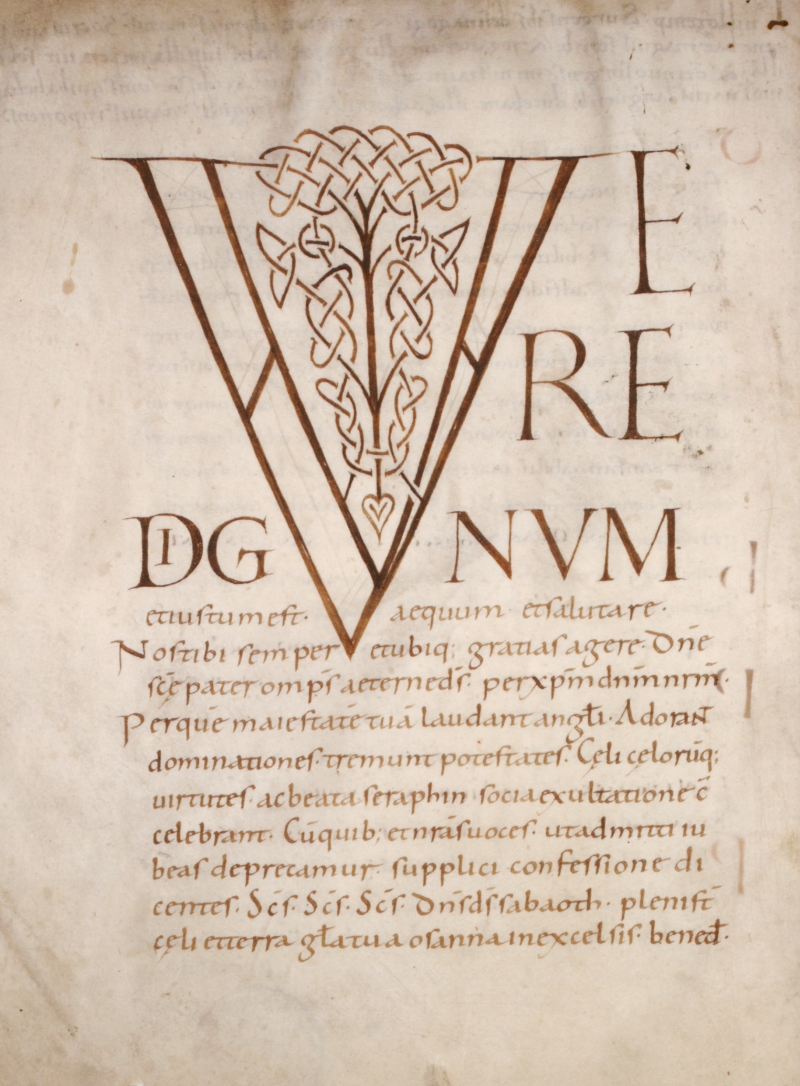 VERE
RE
DIGNUM
et iustum est. aequum et salutare.
Nos tibi semper et ubiq; gratias agere. Dn̄e
sc̄e pater omp̄s aeterne ds̄. per xp̄m dn̄m nr̄m.
Per quē maiestatē tuā laudant angl̄i. Adorant
dominationes. tremunt potestates. Cęli cęlorūq;
uirtutes. ac beata seraphin socia exultatione c̄
celebrant. Cū quib; et nr̄as uoces. ut admitti iu
beas deprecamur. supplici confessione di
centes. Sc̄s. Sc̄s. Sc̄s. Dn̄s ds̄ sabaoth. pleni st̄
cęli et terra gl̄a tua osanna in excelsis. bened̄.